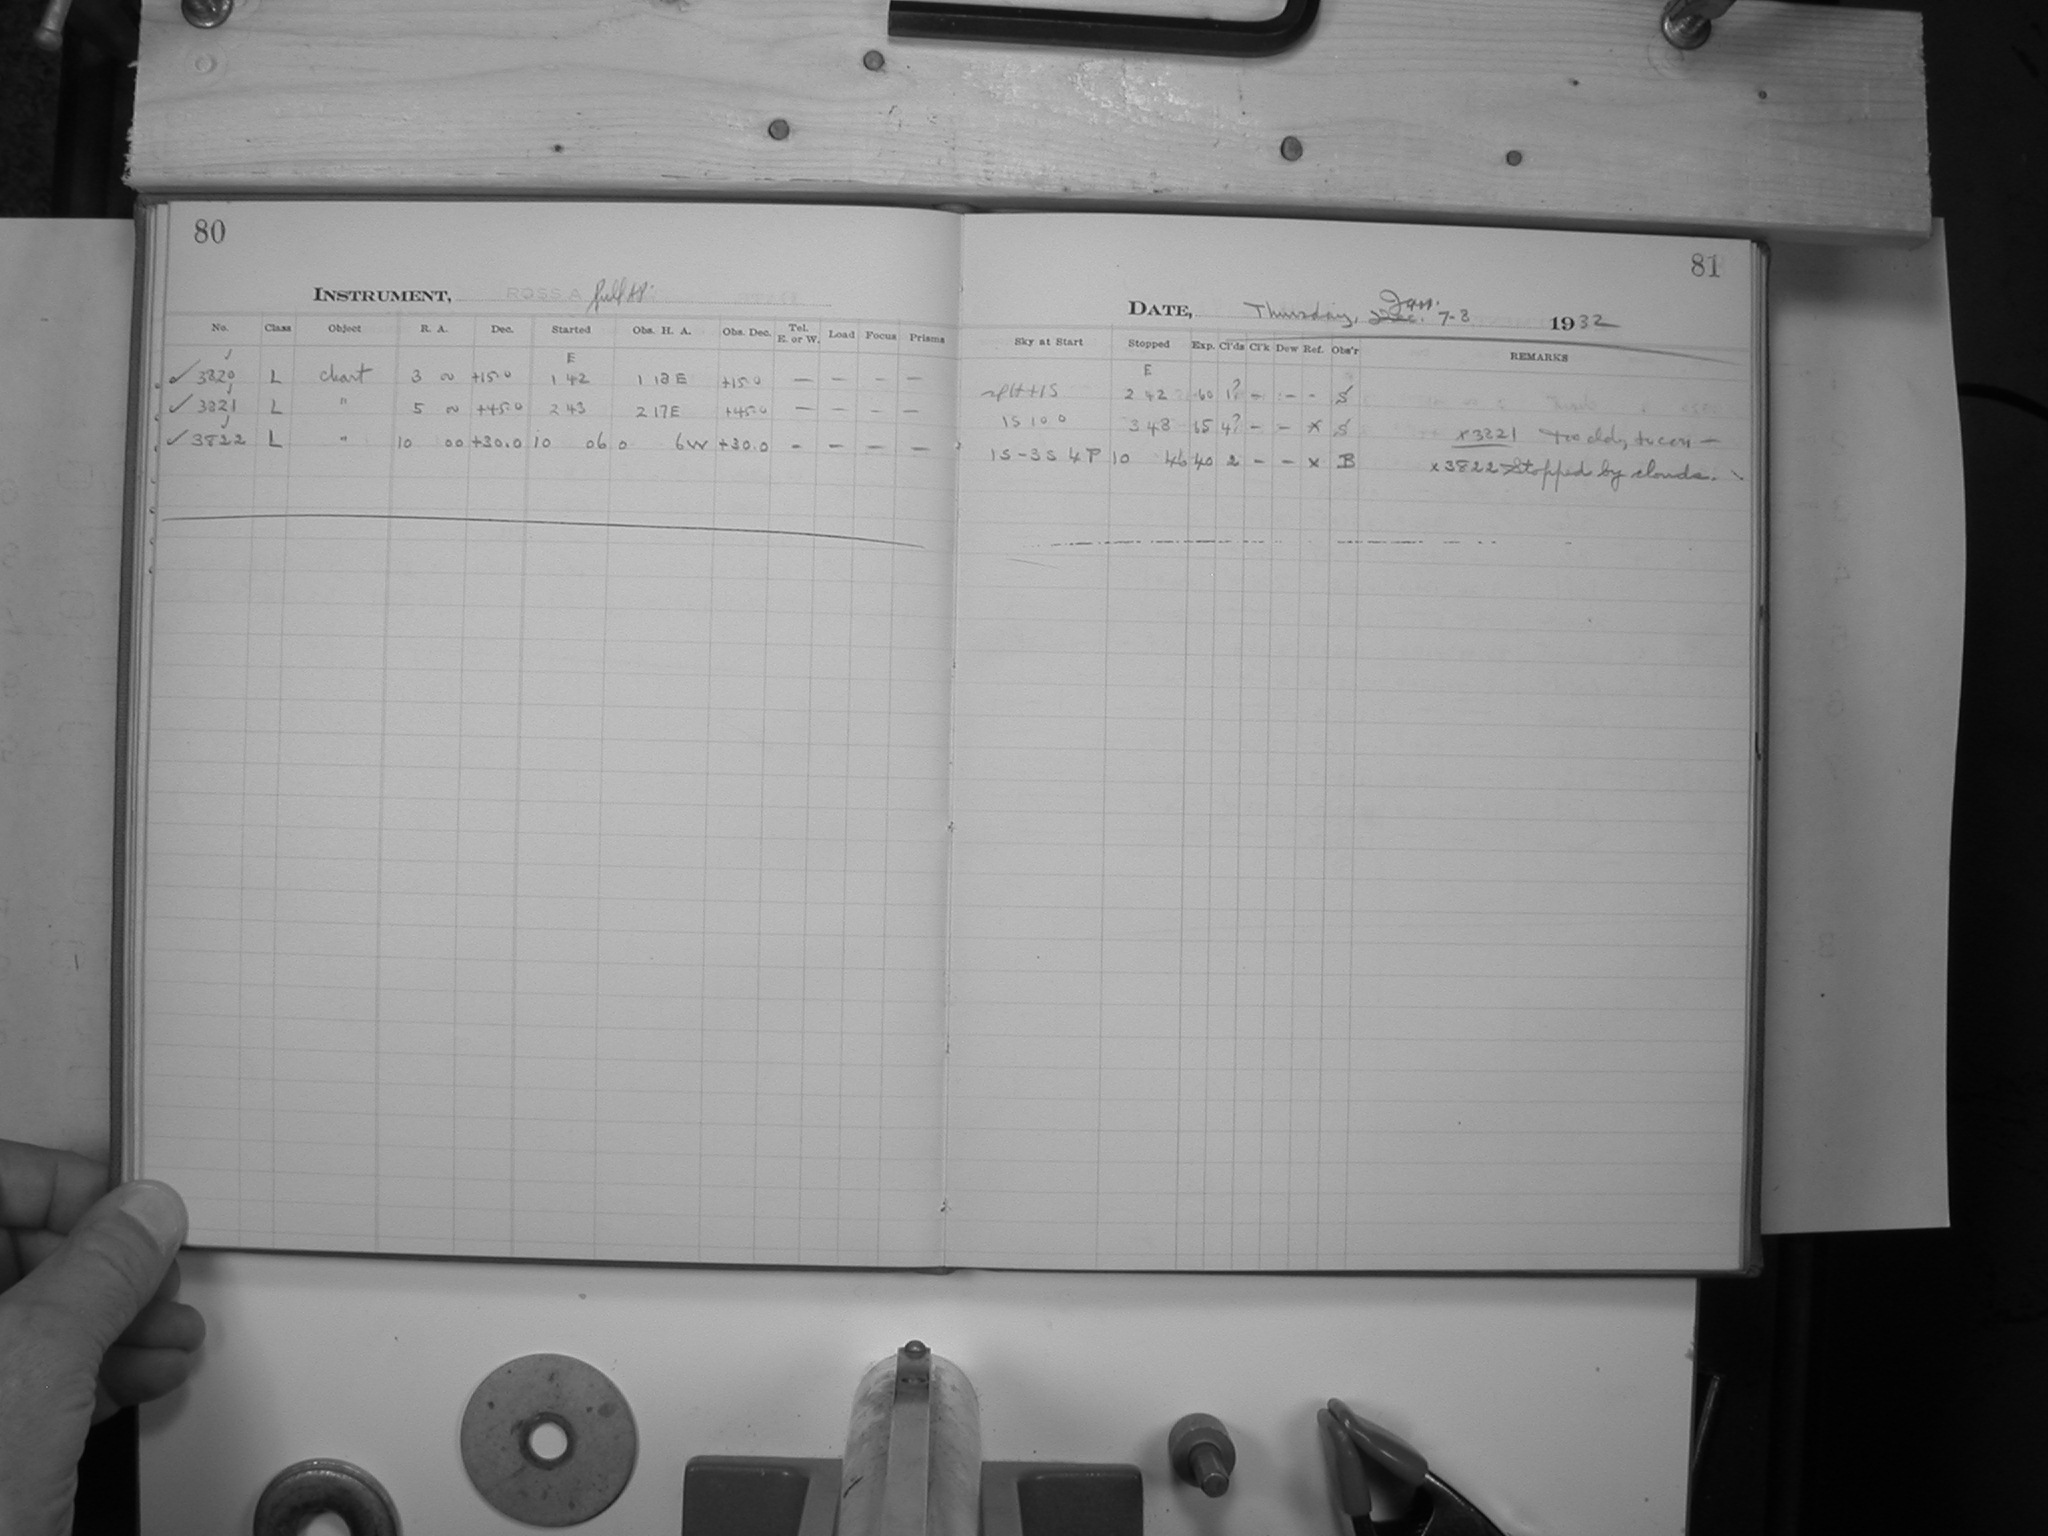 80
INSTRUMENT, ROSS A full ap.
No. Class Object R. A. Dec. Started Obs. H. A. Obs. Dec. Tel. E. or W. Load Focus Prisms
E
✓ 3820 L chart 3 00 +15.0 1 42 1 18 E +15.0 — — — —
✓ 3821 L " 5 00 +45.0 2 43 2 17 E +45.0 — — — —
✓ 3822 L " 10 00 +30.0 10 06 0 6W +30.0 — — — —
81
DATE, Thursday, Jan. Dec. 7-8 1932
Sky at Start Stopped Exp. Cl'ds Cl'k Dew Ref. Obs'r REMARKS
E
2 42 60 1? - - - S
1S 10 0 3 48 65 4? - - x S x3821 Too cloudy to
1S-3S 4P 10 46 40 2 - - x B x3822 Stopped by clouds.